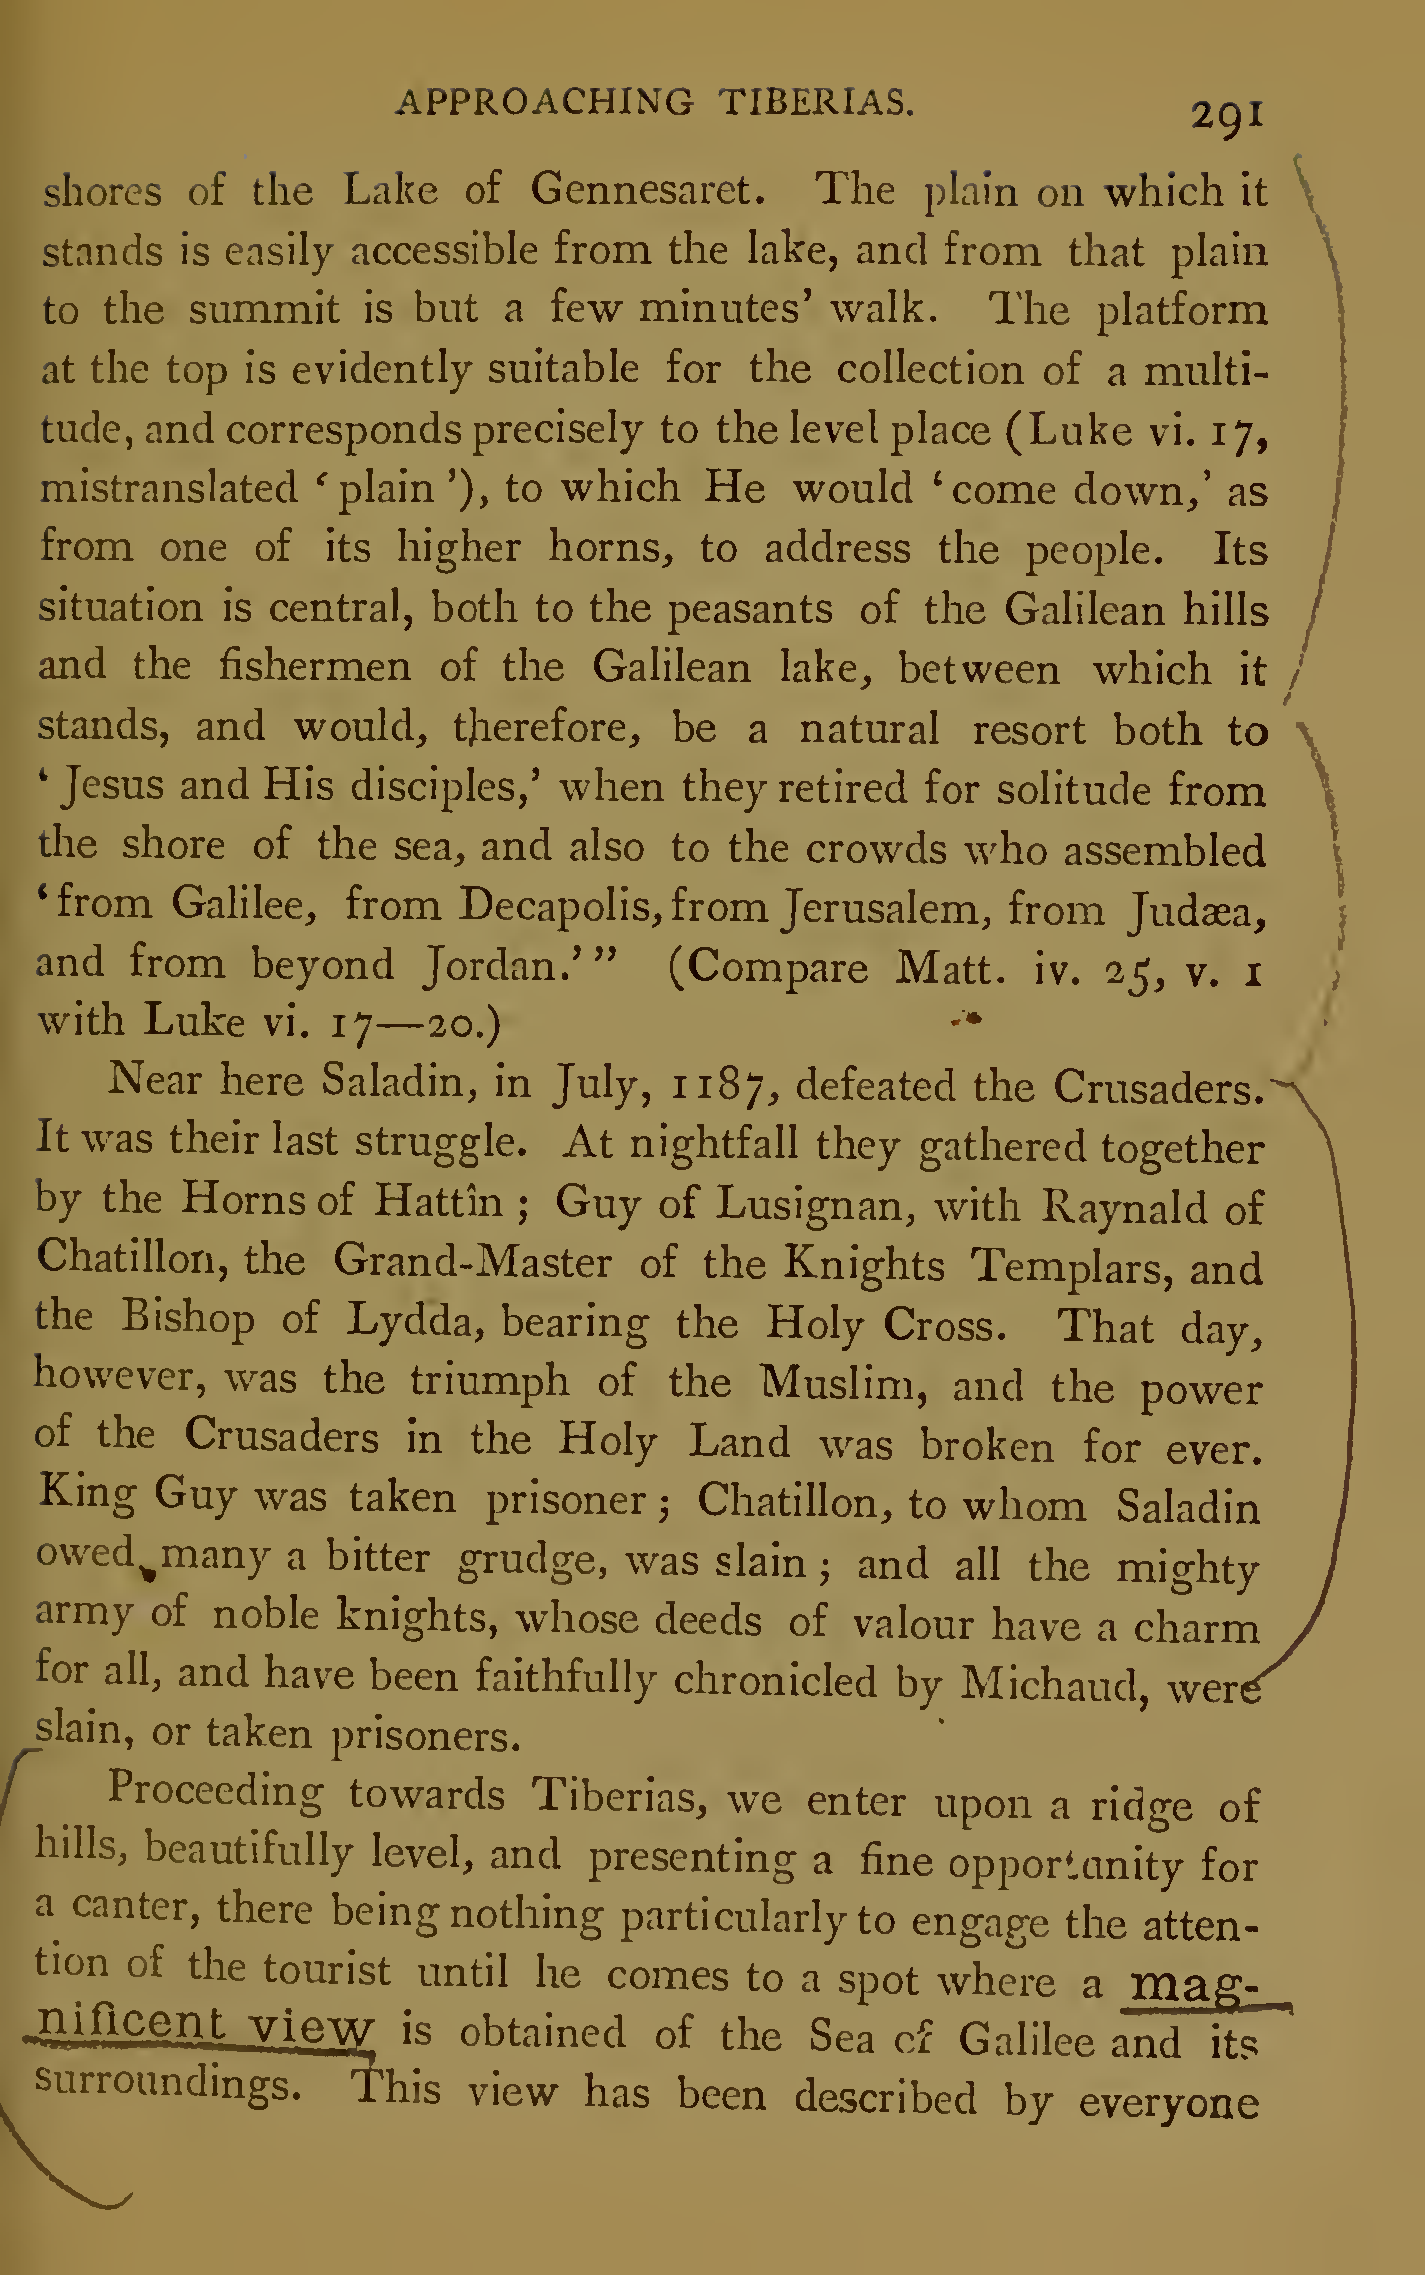 APPROACHING TIBERIAS. 291
shores of the Lake of Gennesaret. The plain on which it
stands is easily accessible from the lake, and from that plain
to the summit is but a few minutes' walk. The platform
at the top is evidently suitable for the collection of a multi-
tude, and corresponds precisely to the level place (Luke vi. 17,
mistranslated ‘plain’), to which He would ‘come down,’ as
from one of its higher horns, to address the people. Its
situation is central, both to the peasants of the Galilean hills
and the fishermen of the Galilean lake, between which it
stands, and would, therefore, be a natural resort both to
‘Jesus and His disciples,’ when they retired for solitude from
the shore of the sea, and also to the crowds who assembled
‘from Galilee, from Decapolis, from Jerusalem, from Judæa,
and from beyond Jordan.’” (Compare Matt. iv. 25, v. 1
with Luke vi. 17—20.)
Near here Saladin, in July, 1187, defeated the Crusaders.
It was their last struggle. At nightfall they gathered together
by the Horns of Hattîn; Guy of Lusignan, with Raynald of
Chatillon, the Grand-Master of the Knights Templars, and
the Bishop of Lydda, bearing the Holy Cross. That day,
however, was the triumph of the Muslim, and the power
of the Crusaders in the Holy Land was broken for ever.
King Guy was taken prisoner; Chatillon, to whom Saladin
owed many a bitter grudge, was slain; and all the mighty
army of noble knights, whose deeds of valour have a charm
for all, and have been faithfully chronicled by Michaud, were
slain, or taken prisoners.
Proceeding towards Tiberias, we enter upon a ridge of
hills, beautifully level, and presenting a fine opportunity for
a canter, there being nothing particularly to engage the atten-
tion of the tourist until he comes to a spot where a mag-
nificent view is obtained of the Sea of Galilee and its
surroundings. This view has been described by everyone